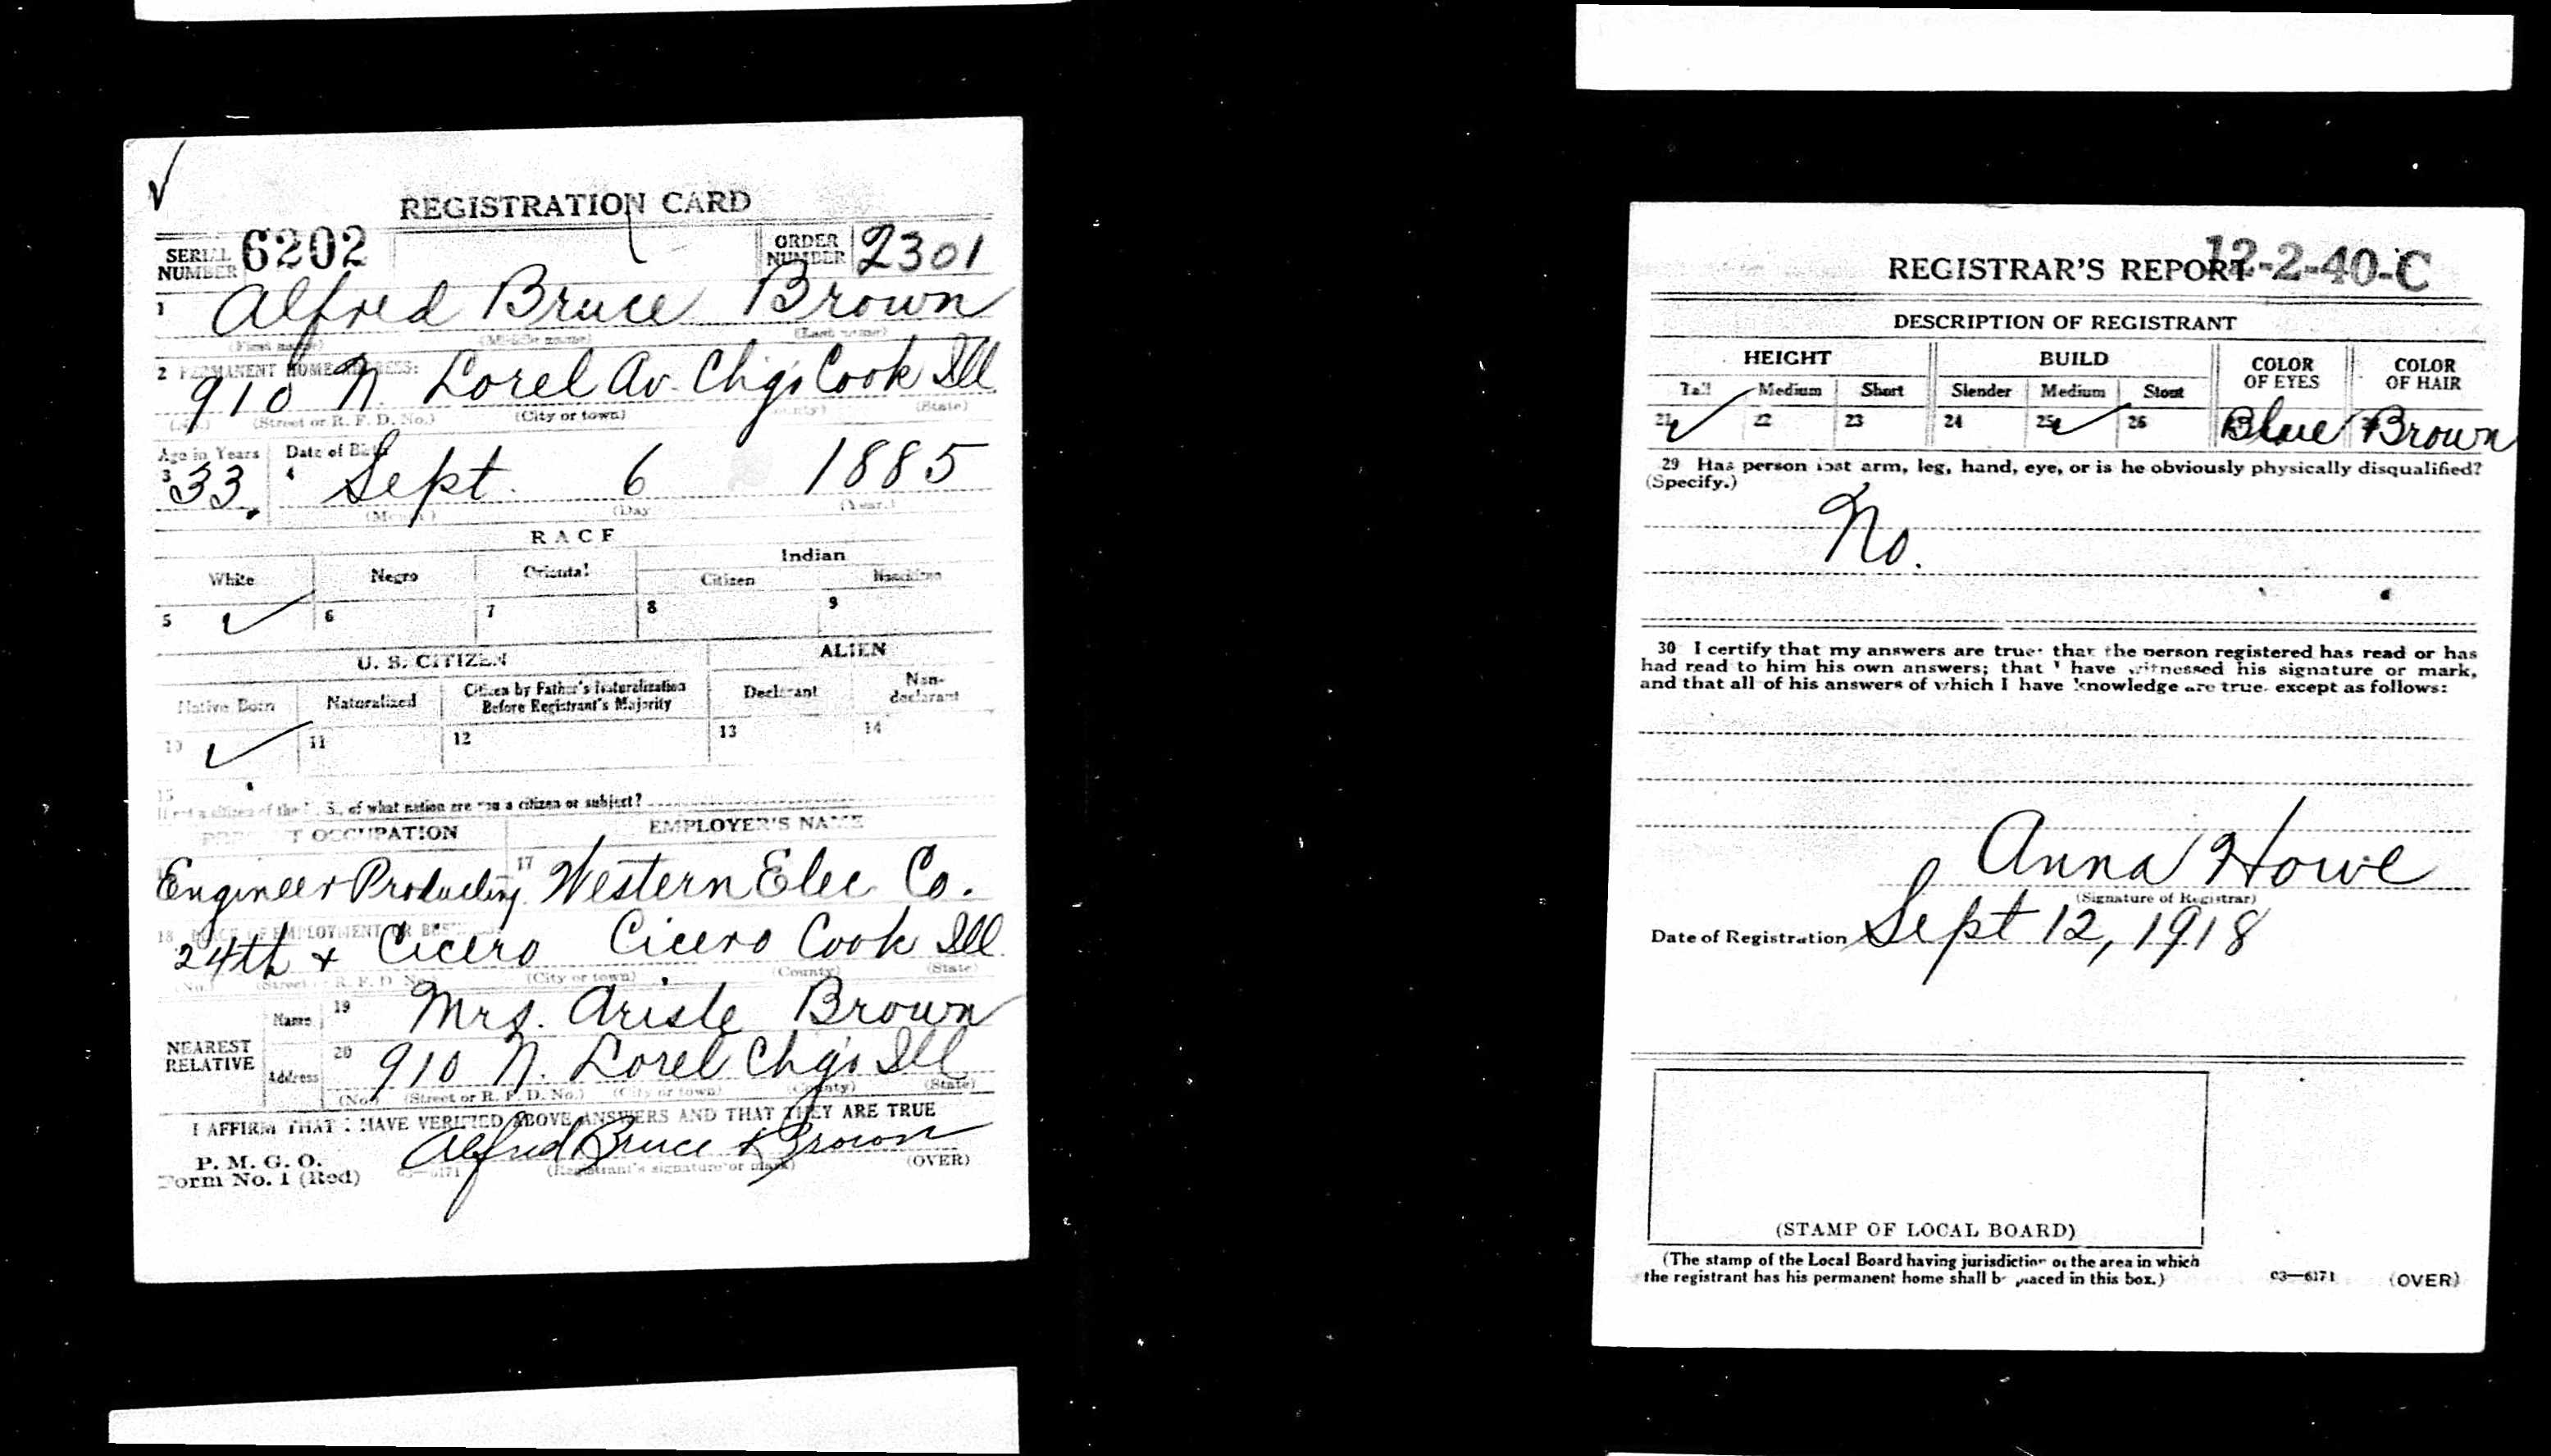 REGISTRATION CARD
SERIAL NUMBER 6202 ORDER NUMBER 2301
1 Alfred Bruce Brown
(First name) (Middle name) (Last name)
2 PERMANENT HOME ADDRESS:
910 N. Lorel Av. Chgo Cook Ill
(No.) (Street or R. F. D. No.) (City or town) (County) (State)
Age in Years Date of Birth
3 33 4 Sept. 6 1885
(Month) (Day (Year.)
RACE
Indian
White Negro Oriental Citizen Noncitizen
5 ✓ 6 7 8 9
U. S. CITIZEN ALIEN
Native Born Naturalized Citizen by Father's Naturalization Before Registrant's Majority Declarant Non-declarant
10 ✓ 11 12 13 14
15
If not a citizen of the U. S., of what nation are you a citizen or subject?
PRESENT OCCUPATION EMPLOYER'S NAME
Engineer Producting 17 Western Elec Co.
18 PLACE OF EMPLOYMENT OR BUSINESS
24th + Cicero Cicero Cook Ill.
(No.) (Street or R. F. D. No.) (City or town) (County) (State)
NEAREST RELATIVE
Name 19 Mrs. Brown
Address 20 910 N. Lorel Chgo Ill
(No.) (Street or R. F. D. No.) (City or town) (County) (State)
I AFFIRM THAT I HAVE VERIFIED ABOVE ANSWERS AND THAT THEY ARE TRUE
P. M. G. O.
Form No. 1 (Red) 03—6171 Alfred Bruce Brown
(Registrant's signature or mark) (OVER)
REGISTRAR'S REPORT 12-2-40-C
DESCRIPTION OF REGISTRANT
HEIGHT BUILD COLOR OF EYES COLOR OF HAIR
Tall Medium Short Slender Medium Stout
21 ✓ 22 23 24 25 ✓ 26 Blue Brown
29 Has person lost arm, leg, hand, eye, or is he obviously physically disqualified?
(Specify.)
No.
30 I certify that my answers are true; that the person registered has read or has
had read to him his own answers; that I have witnessed his signature or mark,
and that all of his answers of which I have knowledge are true, except as follows:
Anna Howe
(Signature of Registrar)
Date of Registration Sept 12, 1918
(STAMP OF LOCAL BOARD)
(The stamp of the Local Board having jurisdiction of the area in which
the registrant has his permanent home shall be placed in this box.)
03—6171 (OVER)